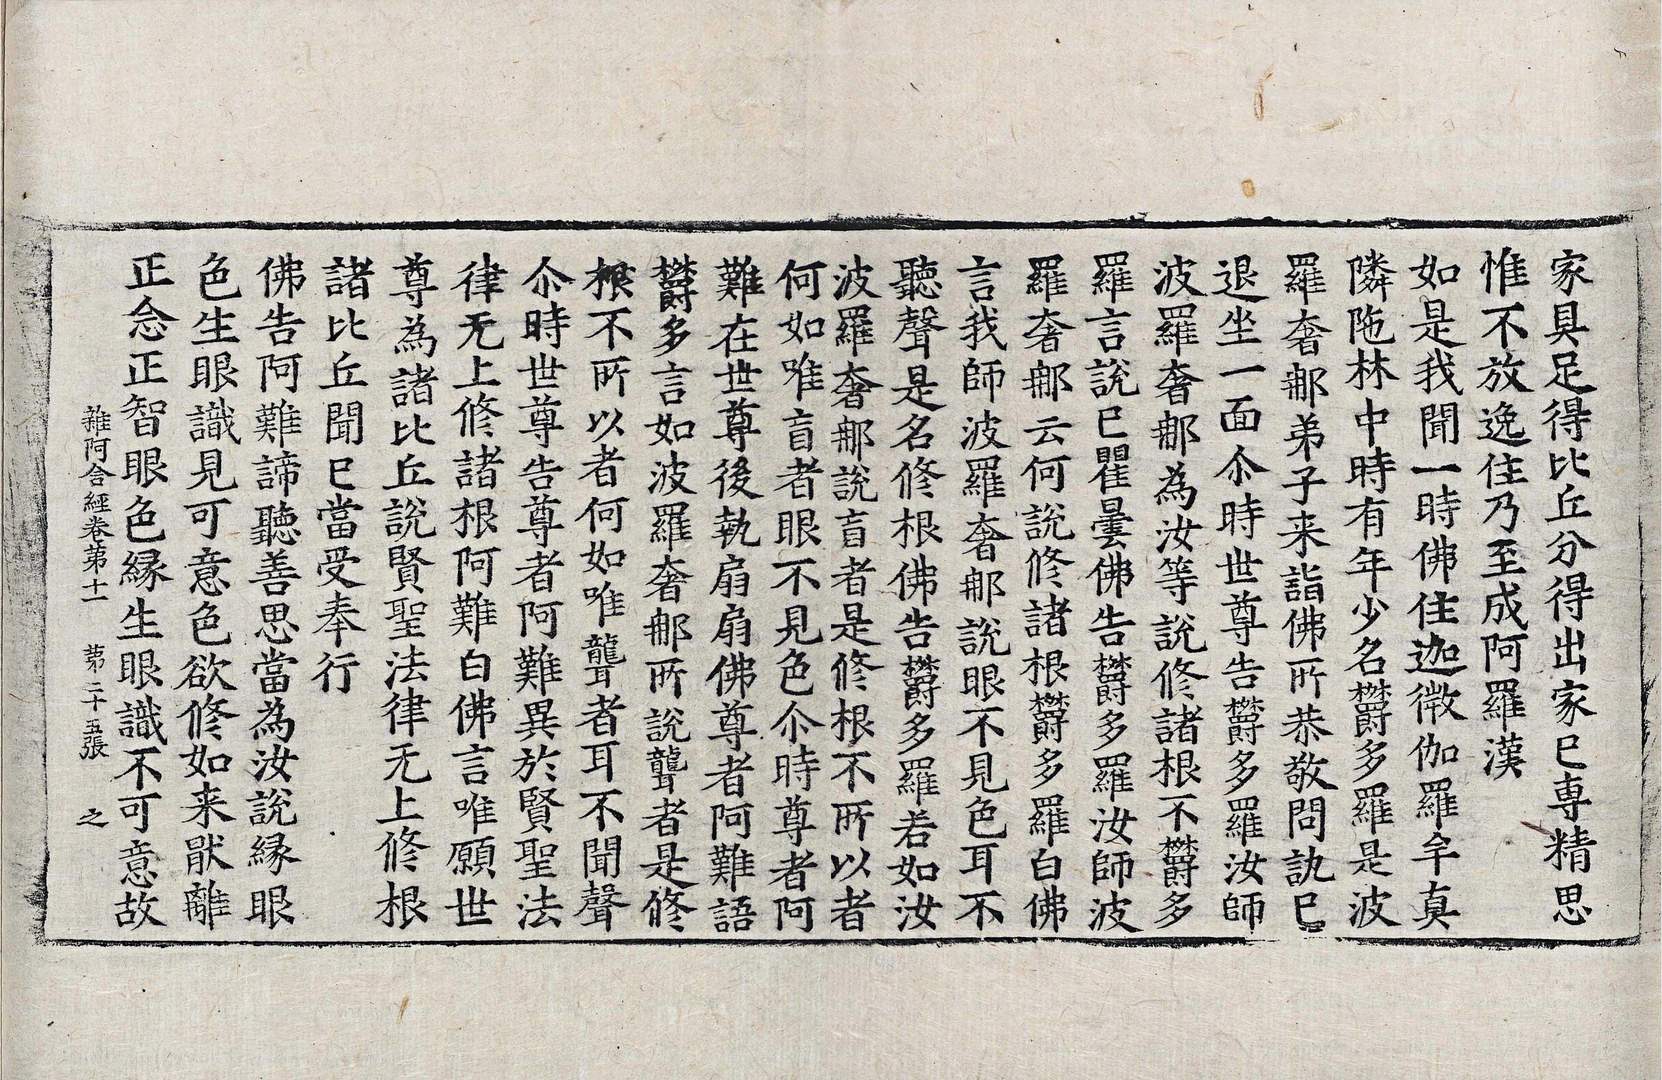 家具足得比丘分得出家已専精思
惟不放逸住乃至成阿羅漢
如是我聞一時佛住迦微伽羅牟真
隣陁林中時有年少名欝多羅是波
羅奢那弟子来詣佛所恭敬問訊已
退坐一面尒時世尊告欝多羅汝師
波羅奢那為汝等說修諸根不欝多
羅言說已瞿曇佛告欝多羅汝師波
羅奢那云何說修諸根欝多羅白佛
言我師波羅奢那說眼不見色耳不
聽聲是名修根佛告欝多羅若如汝
波羅奢那說盲者是修根不所以者
何如唯盲者眼不見色尒時尊者阿
難在世尊後執扇扇佛尊者阿難語
欝多言如波羅奢那所說聾者是修
根不所以者何如唯聾者耳不聞聲
尒時世尊告尊者阿難異於賢聖法
律无上修諸根阿難白佛言唯願世
尊為諸比丘說賢聖法律无上修根
諸比丘聞已當受奉行
佛告阿難諦聽善思當為汝說緣眼
色生眼識見可意色欲修如来猒離
正念正智眼色緣生眼識不可意故
雜阿含經卷第十一 第二十五張 之